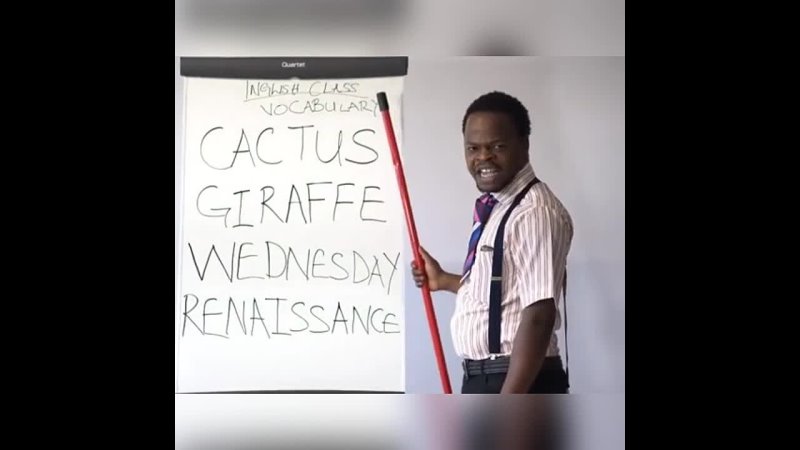 Quartet
INGLISH CLASS
VOCABULARY
CACTUS
GIRAFFE
WEDNESDAY
RENAISSANCE